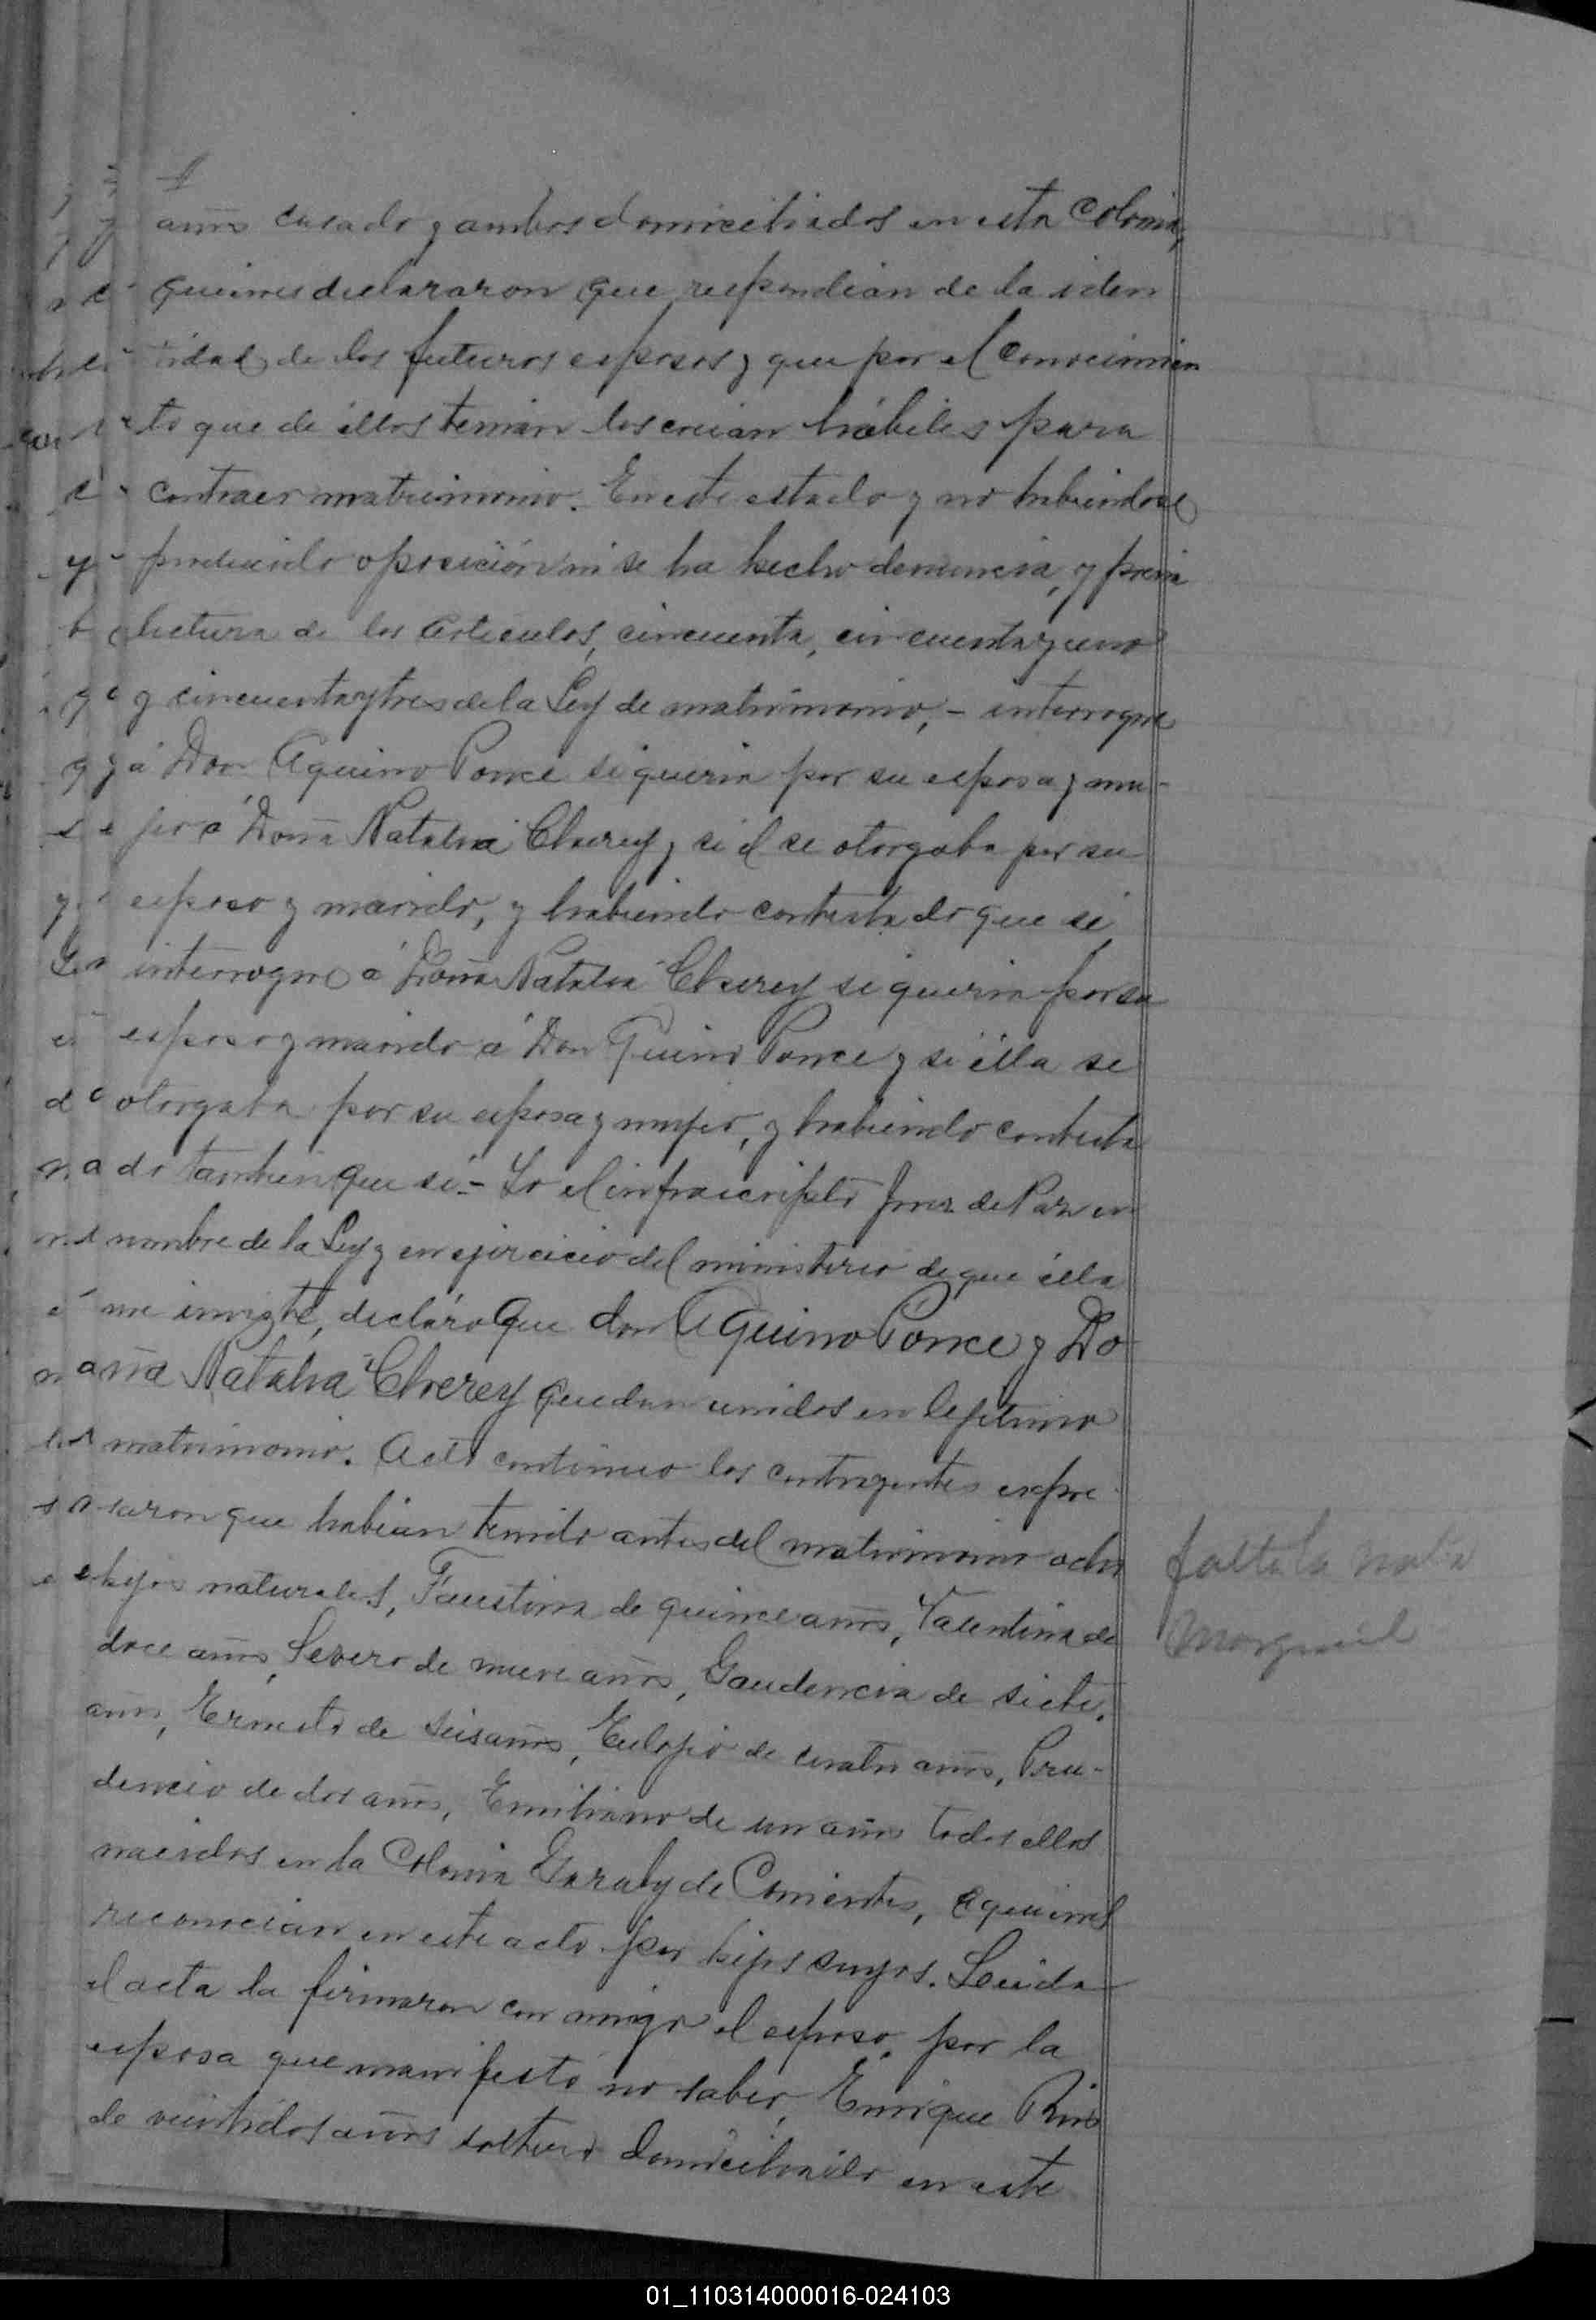 años casado y ambos domiciliados en esta Colonia,
quienes declararon que respondian de la iden
tidad de los futuros esposos y que por el conocimien
to que de ellos tenian los creian hábiles para
contraer matrimonio. En este estado y no habiendose
producido oposición ni se ha hecho denuncia, y previa
lectura de los articulos, cincuenta, cincuenta y uno
y cincuenta y tres de la Ley de matrimonio, - interrogue
á Don Aquino Ponce si queria por su esposa y mu-
jer á Doña Natalia Cherey y si el se otorgaba por su
esposo y marido, y habiendo contestado que si,
interrogue á Doña Natalia Cherey si queria por su
esposo y marido á Don Quino Ponce y si ella se
otorgaba por su esposa y mujer, y habiendo contesta
do tambien que si. - Yo el infraescripto Juez de Paz en
nombre de la Ley y en ejercicio del ministerio de que ella
me inviste, declaro que don Aquino Ponce y Do
ña Natalia Cherey quedan unidos en lejitimo
matrimonio. Acto continuo los contrayentes expre
saron que habian tenido antes del matrimonio ocho
hijos naturales, Faustina de quince años, Valentina de
doce años, Severo de nueve años, Gaudencia de siete
años, Ernesto de seis años, Eulojio de cuatro años, Pru-
dencio de dos años, Emiliano de un año todos ellos
nacidos en la Colonia Garaby de Corrientes, a quienes
reconocian en este acto por hijos suyos. Leida
el acta la firmaron con migo el esposo, por la
esposa que manifestó no saber, Enrique
de veintidos años soltero domiciliado en este
falta la nota
marginal
01_110314000016-024103